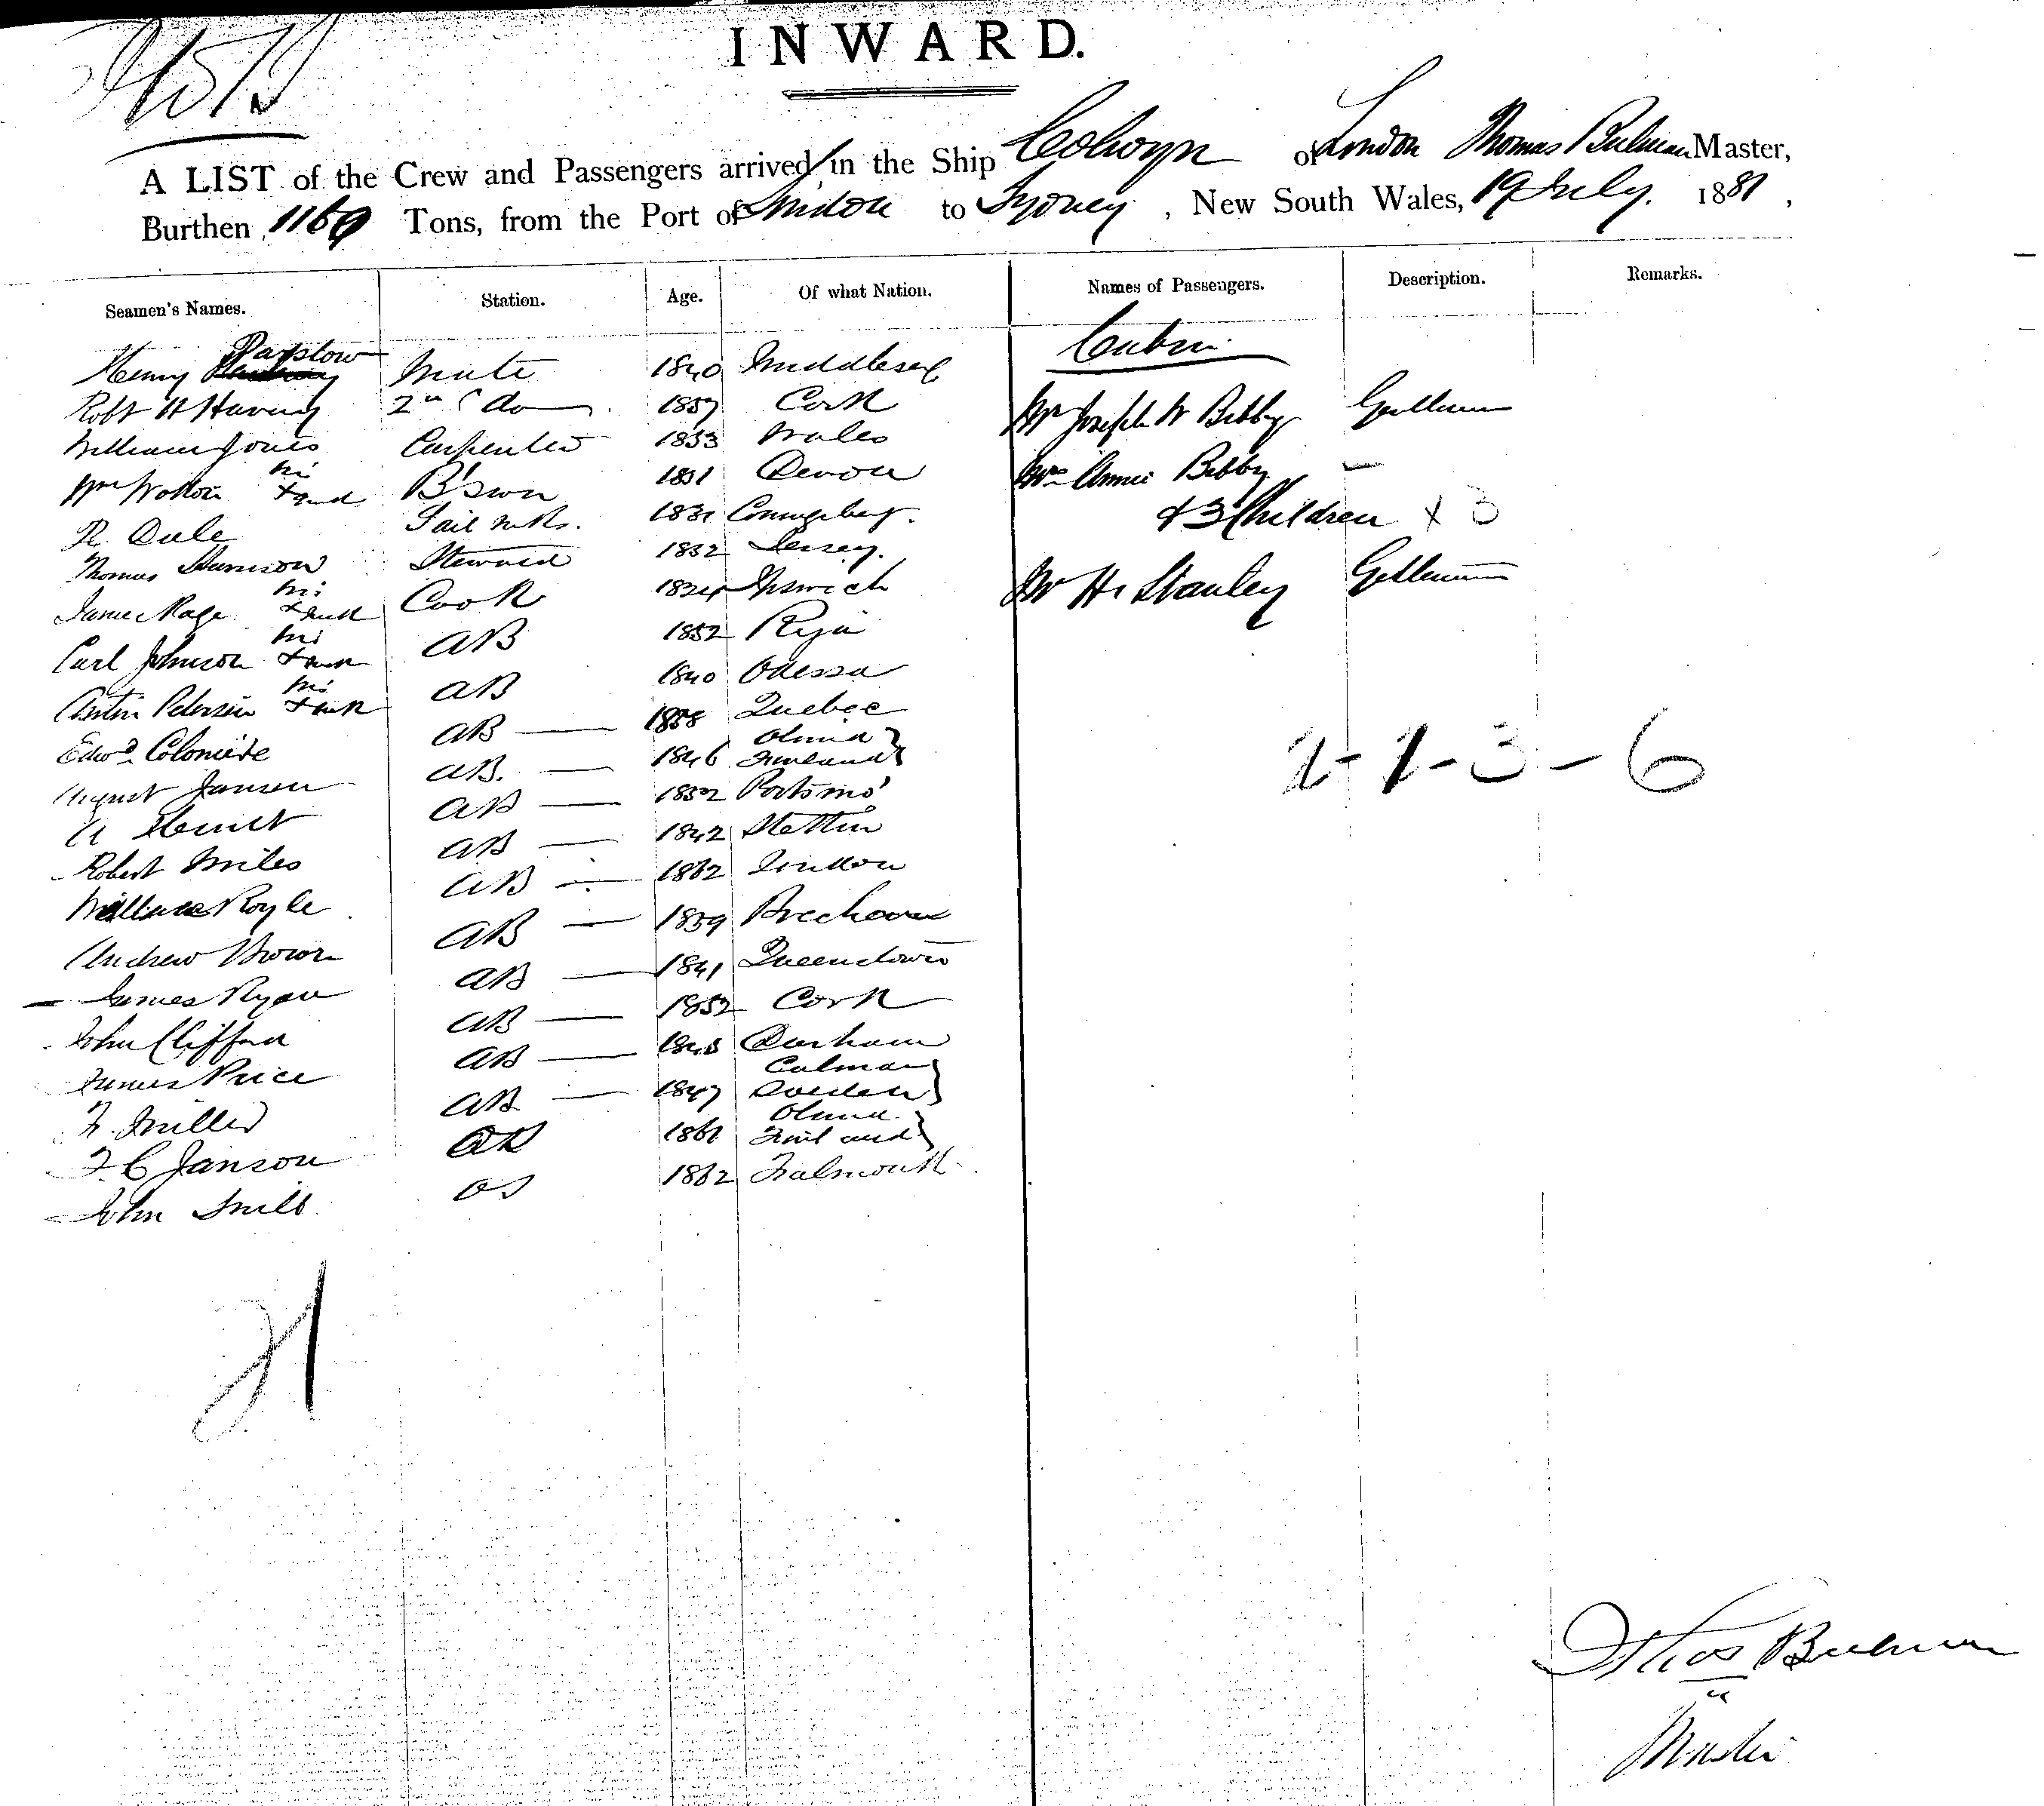 INWARD.
A LIST of the Crew and Passengers arrived in the Ship Colwyn of London Thomas Bulman Master,
Burthen 1169 Tons, from the Port of London to Sydney, New South Wales, 19 July. 1881,
Seamen's Names. Station. Age. Of what Nation. Names of Passengers. Description. Remarks.
Cabin
Henry Parslow Mate 1840 Middlesex
Robt H Harvey 2nd do 1857 Cork Mr Joseph W Bibby Gentleman
William Jones Carpenter 1833 Wales
Wm Wotton his x mark B'swn 1831 Devon Mrs Annie Bibby —
R. Dale Sail mkr. 1831 & 3 Children x 3
Thomas Harrison Steward 1832 Jersey.
James Page his x mark Cook 1824 Ipswich Mr H. Stanley Gentleman
Carl Johnson his x mark AB 1852 Riga
Anton Petersen his x mark AB 1840 Odessa
Edwd AB — 1858 Quebec
August Jansen AB. — 1846 Finland
A AB — 1852 Portsmo'
Robert Miles AB — 1842 Stettin
William Royle AB — 1862 London
Andrew Brown AB — 1859
James Ryan AB — 1841 Queenstown
John Clifford AB — 1852 Cork
James Price AB — 1843 Durham
F. Miller AB — 1847 Calmar Sweden
F. C Janson AB 1861 Finland
John OS 1862 Falmouth
2-1-3-6
21
Thos Bulman
Master